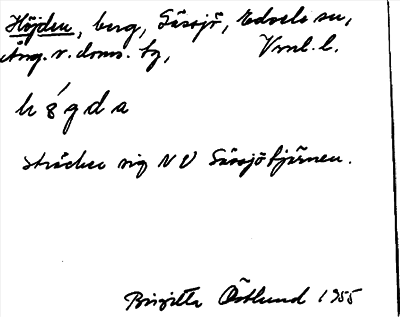 Höjden, berg, Sässjö, Edsele sn,
Ång. v. doms. tg, Vrnl. l.
h ǵ g d a
sträcker sig NV Sässjötjärnen.
Birgitta Östlund 1955